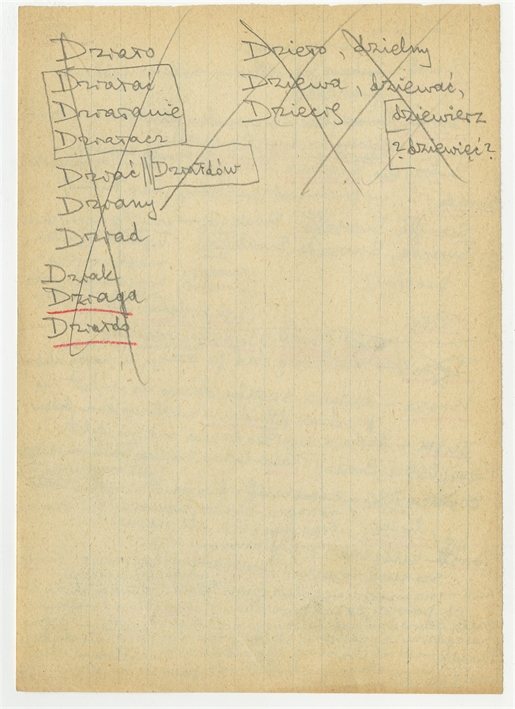 Działo
Działać
Działanie
Działacz
Dziać || Działdów
Dziany
Dziad
Dziak
Dziaga
Działdo
Dzieło, dzielny
Dziewa, dziewać,
Dziecię
dziewierz
? dziewięć?